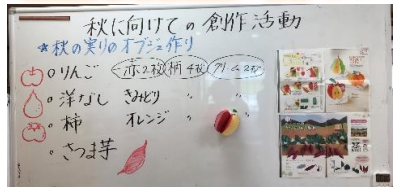 秋に向けての創作活動
☆秋の実りのオブジェ作り
りんご 赤2枚 柄4枚 クリーム2枚
洋なし きみどり 〃 〃
柿 オレンジ 〃 〃
さつま芋